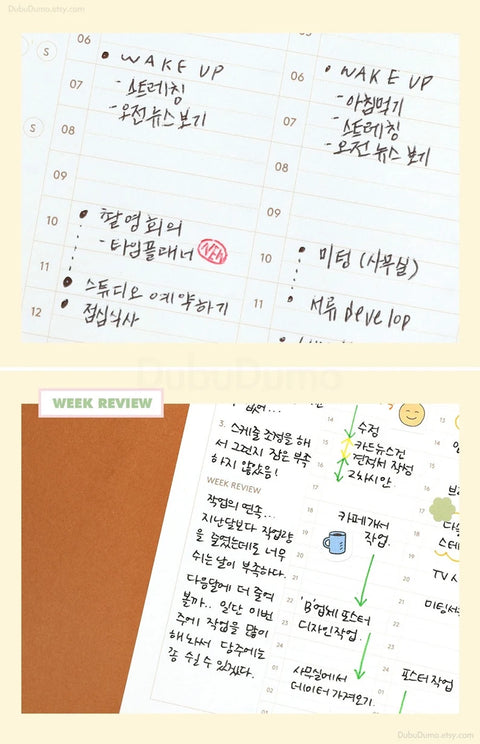 DubuDumo.etsy.com
06
S
• WAKE UP
07
- 스트레칭
- 오전뉴스보기
S
08
09
10
• 촬영회의
- 타임플래너 NEW
11
• 스튜디오 예약하기
12
• 점심식사
06
• WAKE UP
- 아침먹기
07
- 스트레칭
- 오전 뉴스 보기
08
09
10
• 미팅 (사무실)
11
• 서류 develop
DubuDumo
WEEK REVIEW
없어...
3. 스케줄 조정을 해
서 그런지 잠은 부족
하지 않았음!
WEEK REVIEW
작업의 연속...
지난달보다 작업량
을 줄였는데도 너무
쉬는 날이 부족하다.
다음달에 더 줄여
볼까.. 일단 이번
주에 작업을 많이
해놔서 담주에는
좀 쉴 수 있겠다.
14
15
16
17
18
19
20
21
22
23
24
01
수정
카드뉴스건
견적서 작성
2차시안
카페가서
작업.
'B'업체 포스터
디자인작업.
사무실에서
데이터 가져오기.
13
14
15
16
17
18
19
20
21
22
23
24
01
02
TV
포스터 작업
DubuDumo.etsy.com